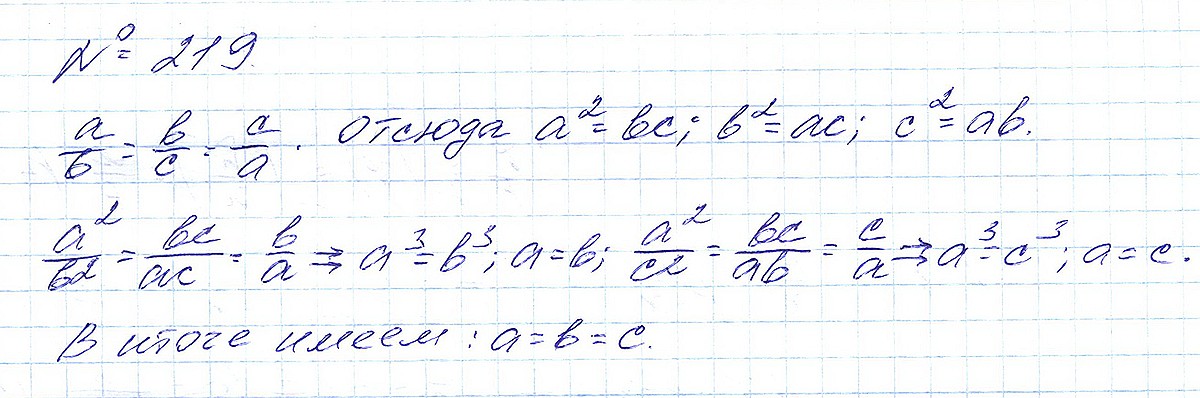 № 219.
a/в = в/c = c/a. отсюда a² = вc; в² = ac; c² = aв.
a²/в² = вc/ac = в/a ⇒ a³ = в³; a = в; a²/c² = вc/aв = c/a ⇒ a³ = c³; a = c.
В итоге имеем: a = в = c.